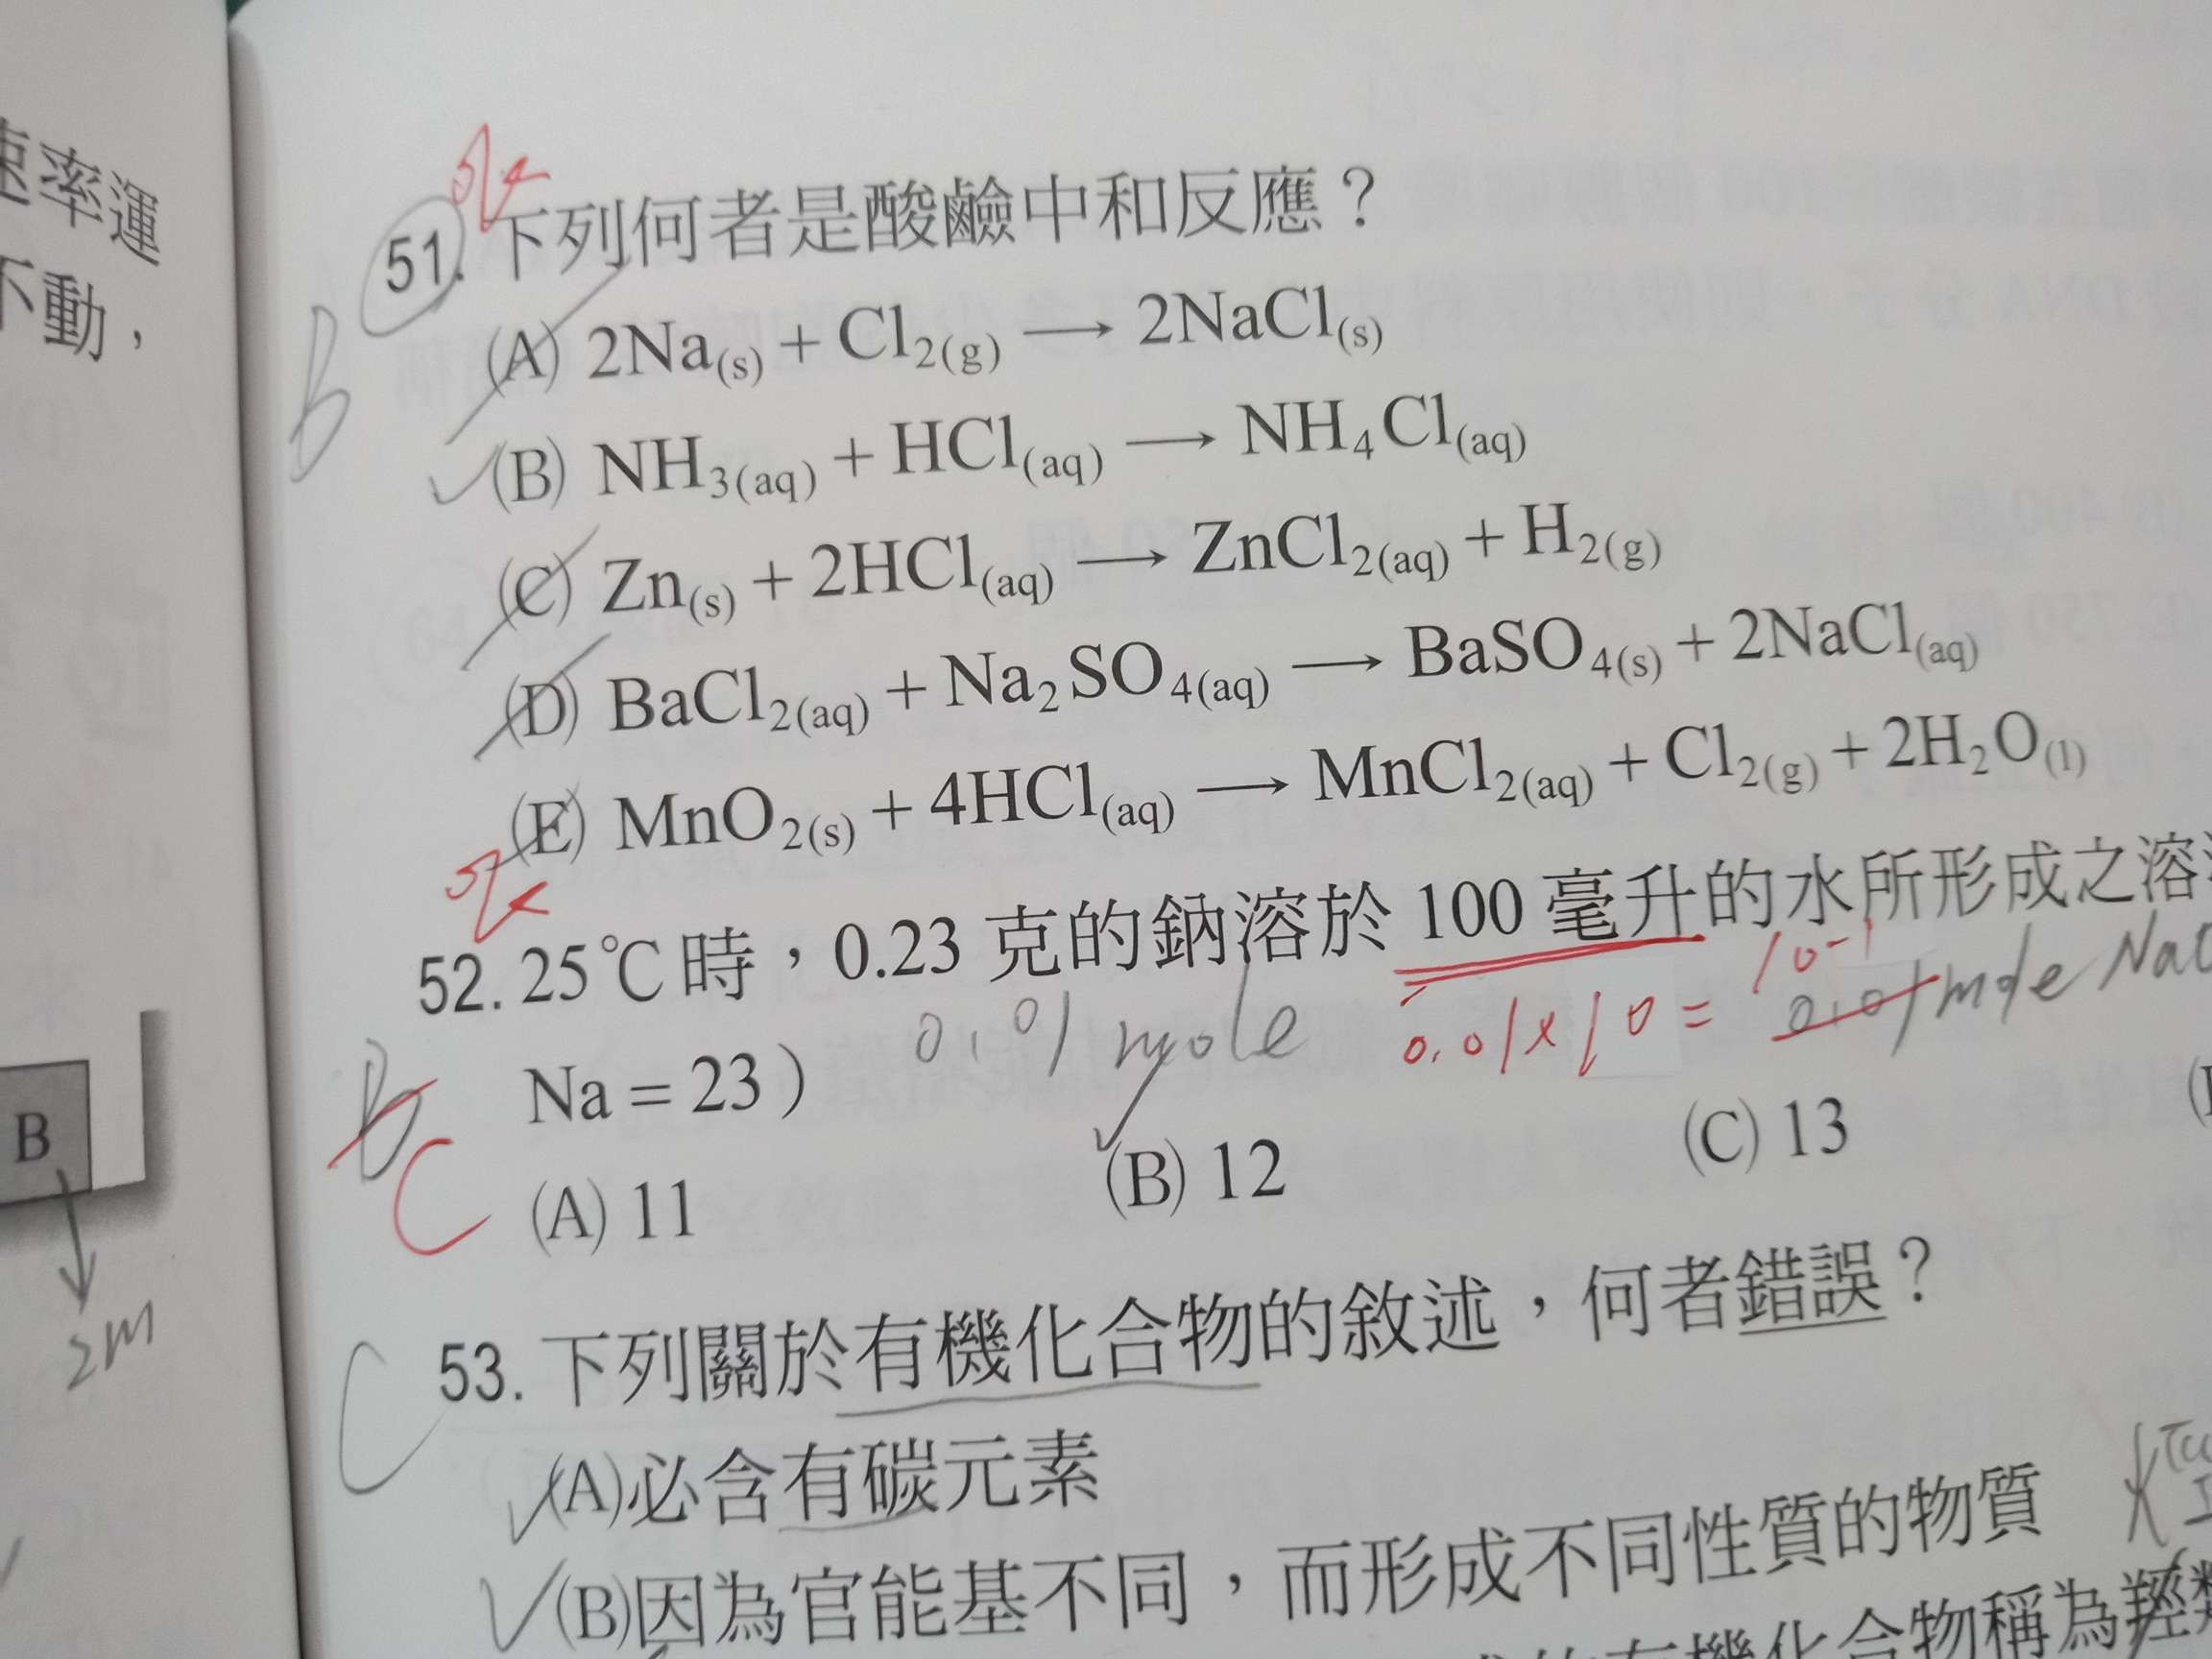 率運
不動，
B
2m
51. 下列何者是酸鹼中和反應？
B
(A) 2Na(s) + Cl2(g) ⟶ 2NaCl(s)
(B) NH3(aq) + HCl(aq) ⟶ NH4Cl(aq)
(C) Zn(s) + 2HCl(aq) ⟶ ZnCl2(aq) + H2(g)
(D) BaCl2(aq) + Na2SO4(aq) ⟶ BaSO4(s) + 2NaCl(aq)
(E) MnO2(s) + 4HCl(aq) ⟶ MnCl2(aq) + Cl2(g) + 2H2O(l)
52. 25℃時，0.23 克的鈉溶於 100 毫升的水所形成之溶
10-1
0.01 mole 0.01x10= 0.01mole Na
B
C
Na = 23）
(A) 11 (B) 12 (C) 13
C
53. 下列關於有機化合物的敘述，何者錯誤？
(A)必含有碳元素
(B)因為官能基不同，而形成不同性質的物質
有機化合物稱為